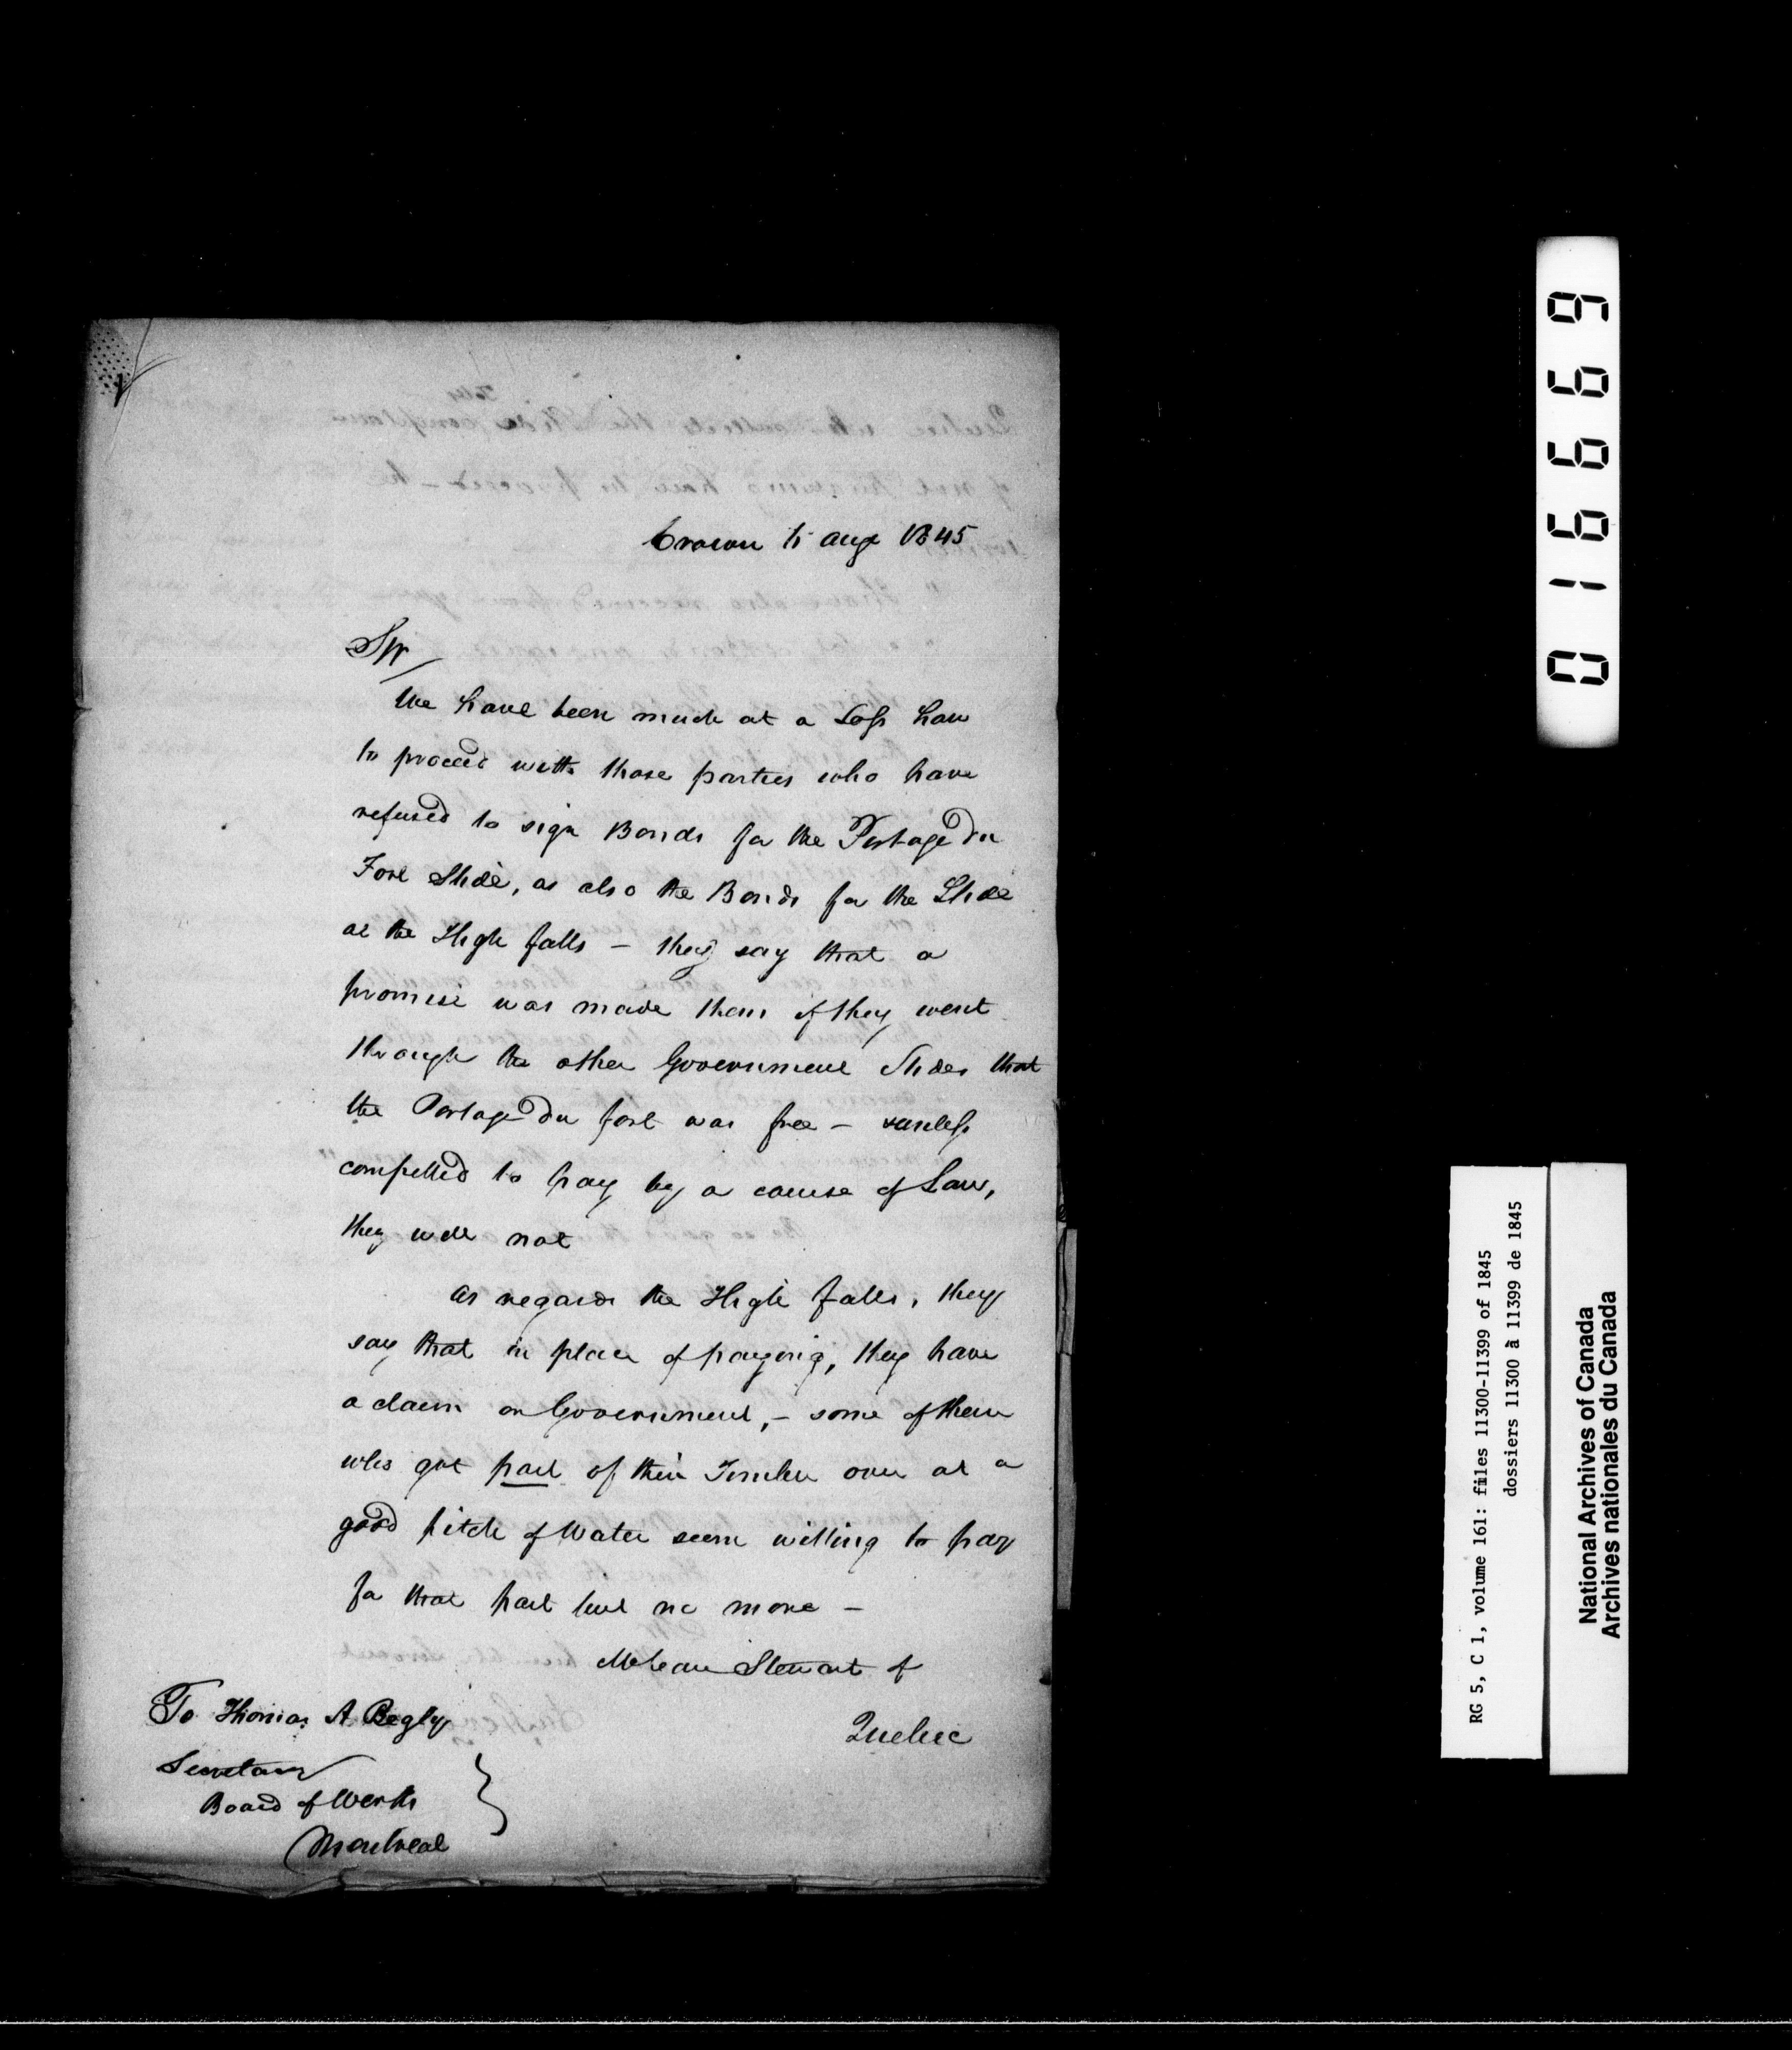 Bytown 15 Aug 1845
Sir
We have been much at a Loss how
to proceed with those parties who have
refused to sign Bonds for the Portage du
Fort Slide, as also the Bonds for the Slide
at the High falls – they say that a
promise was made them if they went
through the other Government Slides that
the Portage du fort was free – unless
compelled to pay by a course of Law,
they will not
As regards the High falls, they
say that in place of paying, they have
a claim on Government, – some of them
who got part of their Timber over at a
good pitch of Water seem willing to pay
for that part but no more –
McLean Stewart of
Quebec
To Thomas A Begly
Secretary
Board of Works
Montreal
016669
RG 5, C 1, volume 161: files 11300-11399 of 1845
dossiers 11300 à 11399 de 1845
National Archives of Canada
Archives nationales du Canada